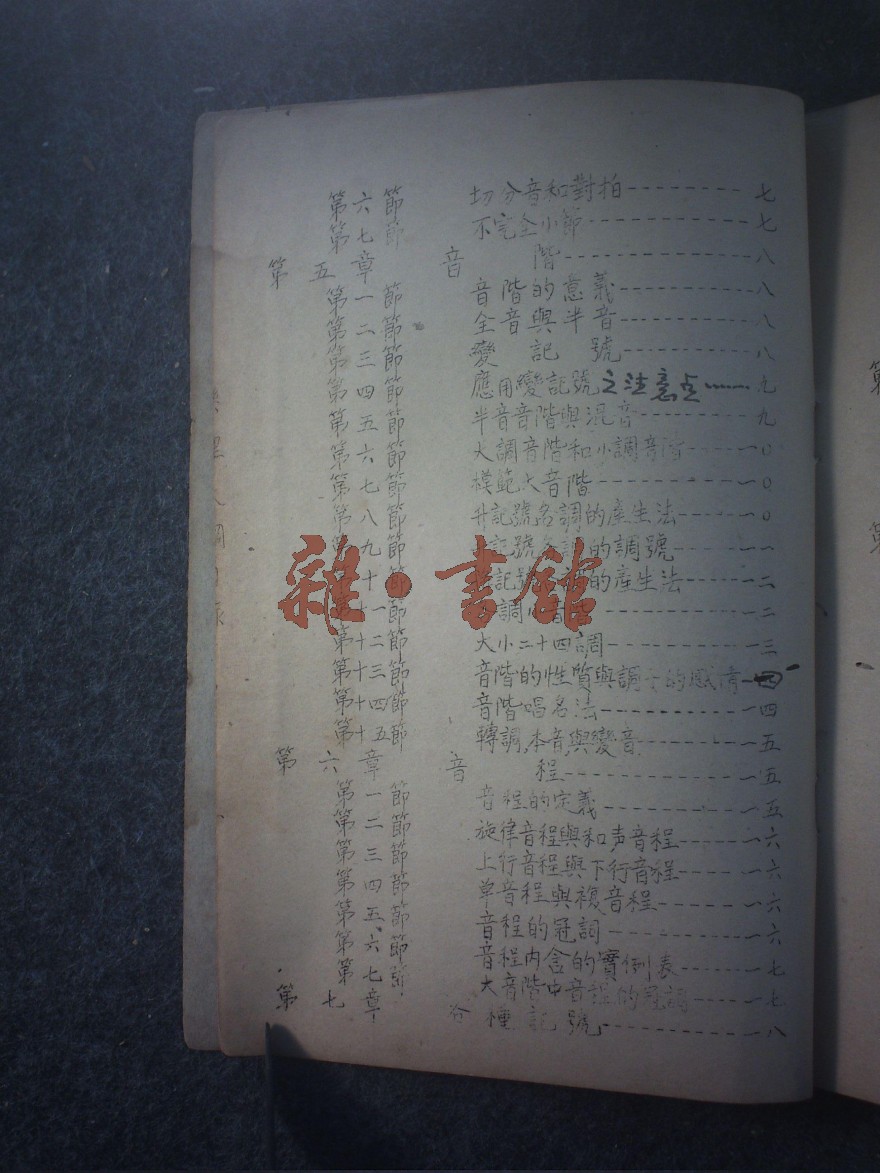 第六節 切分音和對拍 七
第七節 不完全小節 七
第五章 音階 八
第一節 音階的意義 八
第二節 全音與半音 八
第三節 變記號 八
第四節 應用變記號之注意点 九
第五節 半音音階與混音 九
第六節 大調音階和小調音階 一〇
第七節 模範大音階 一〇
第八節 升記號名調的產生法 一〇
第九節 記號 的調號 一一
第十節 記號 的產生法 一二
十一節 調小音 一二
第十二節 大小二十四調 一三
第十三節 音階的性質與調子的感情 一四
第十四節 音階唱名法 一四
第十五節 轉調,本音與變音 一五
第六章 音程 一五
第一節 音程的定義 一五
第二節 旋律音程與和声音程 一六
第三節 上行音程與下行音程 一六
第四節 单音程與複音程 一六
第五節 音程的冠詞 一六
第六節 音程内含的實例表 一七
第七節 大音階中音程的冠詞 一七
第七章 各種記號 一八
雜·書館